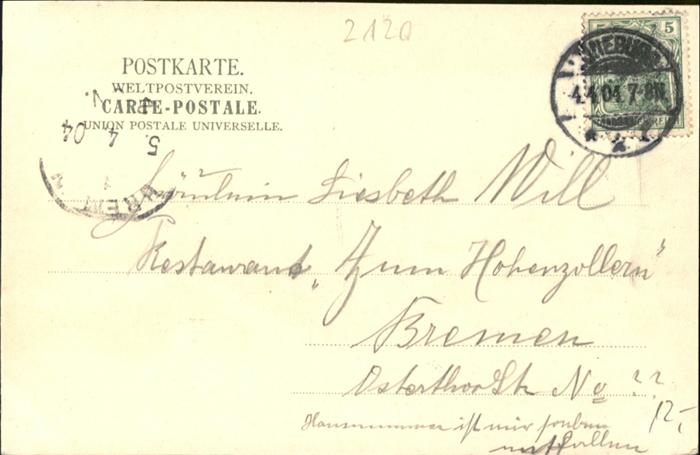 2120
POSTKARTE.
WELTPOSTVEREIN.
CARTE-POSTALE.
UNION POSTALE UNIVERSELLE.
5
LÜNEBURG
4.4.04.7-8N.
5. 4 04
BREMEN
Fräulein Liesbeth Will
Restaurant „Zum Hohenzollern"
Bremen
Osterthor Str No ??
12,-
Hausnummer ist mir soeben
entfallen